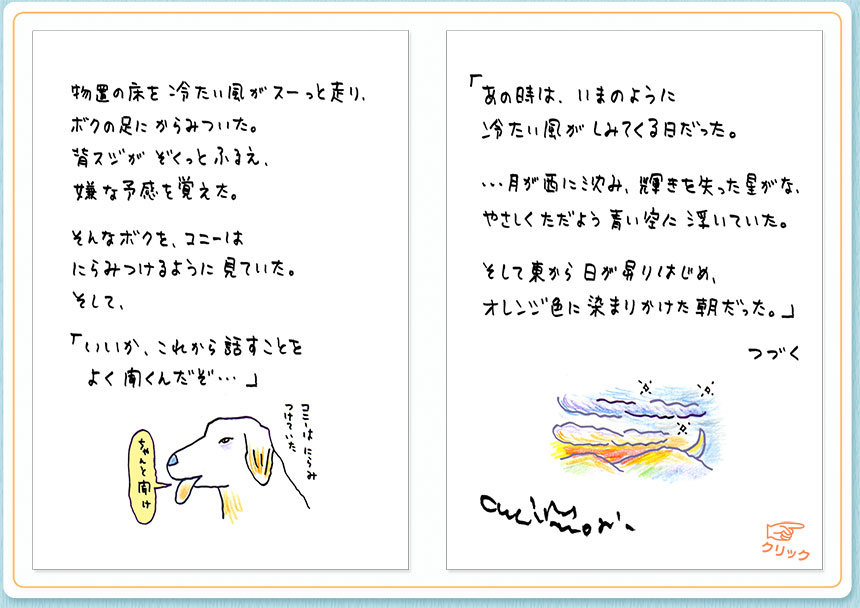 物置の床を冷たい風がスーっと走り、
ボクの足にからみついた。
背スジがぞくっとふるえ、
嫌な予感を覚えた。
そんなボクを、コニーは
にらみつけるように見ていた。
そして、
「いいか、これから話すことを
よく聞くんだぞ…」
コニーはにらみ
つけていた
ちゃんと聞け
「あの時は、いまのように
冷たい風がしみてくる日だった。
…月が西に沈み、輝きを失った星がな、
やさしくただよう青い空に浮いていた。
そして東から日が昇りはじめ、
オレンジ色に染まりかけた朝だった。」
つづく
クリック